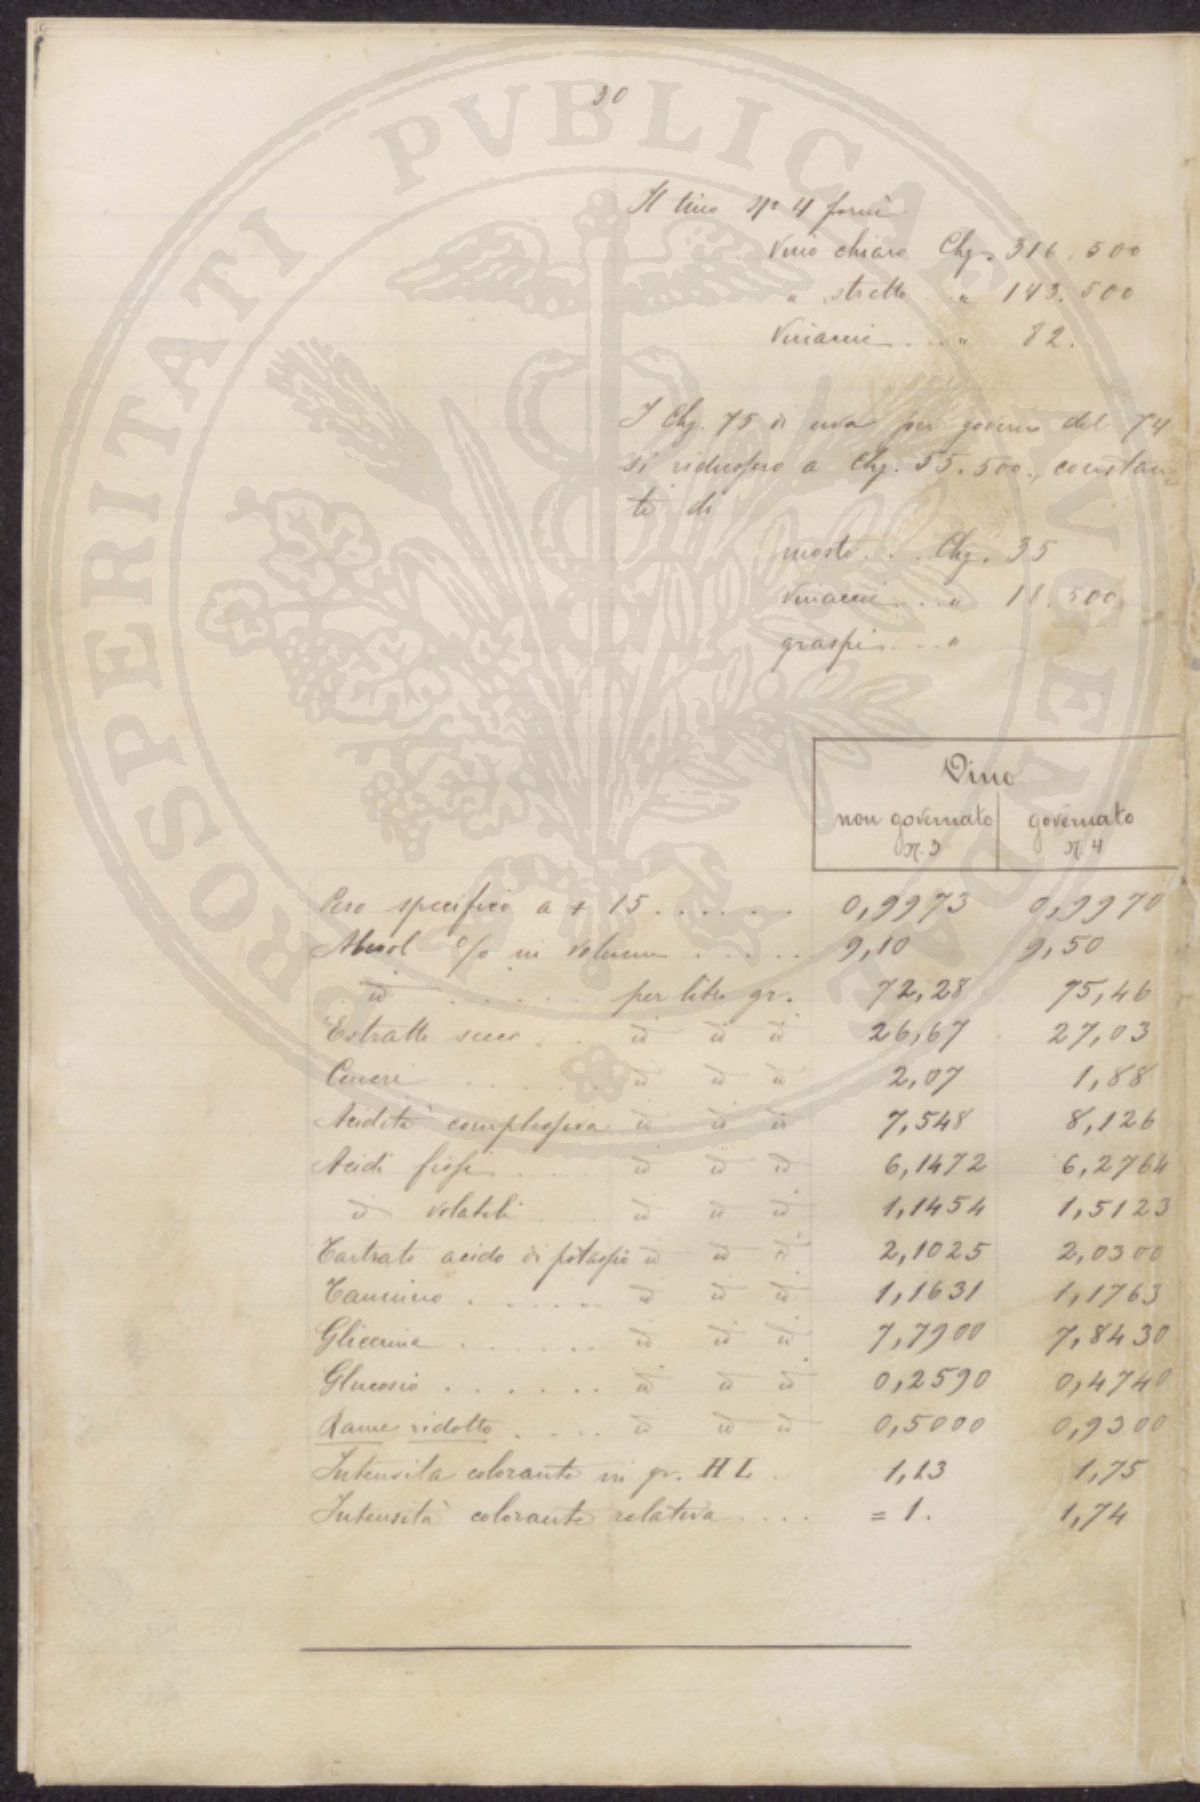 30
Il tino N° 4 fornì
Vino chiaro Chg. 316.500
" stretto .. " 143.500
Vinaccie ... " 82.
I Chg. 75 di uva per governo del 74
si ridussero a Chg. 55.500., constan-
ti di
mosto ... Chg. 35
Vinaccie ... " 18.500
graspi ... "
Vino
non governato governato
N. 3 N. 4
Peso specifico a + 15 ...... 0,9973 0,9970
Alcool % in volume ..... 9,10 9,50
id ...... per litro gr. 72,28 75,46
Estratto secco .. id id id 26,67 27,03
Ceneri ...... id id id 2,07 1,88
Acidità complessiva id id id 7,548 8,126
Acidi fissi .... id id id 6,1472 6,2764
id volatili ... id id id 1,1454 1,5123
Tartrato acido di potassio id id id 2,1025 2,0300
Tannino ...... id id id 1,1631 1,1763
Glicerina ...... id id id 7,7900 7,8430
Glucosio ...... id id id 0,2590 0,4740
Rame ridotto .... id id id 0,5000 0,9300
Intensità colorante in gr. HL . 1,13 1,75
Intensità colorante relativa .... = 1. 1,74
PROSPERITATI PVBLICAE AVGENDAE